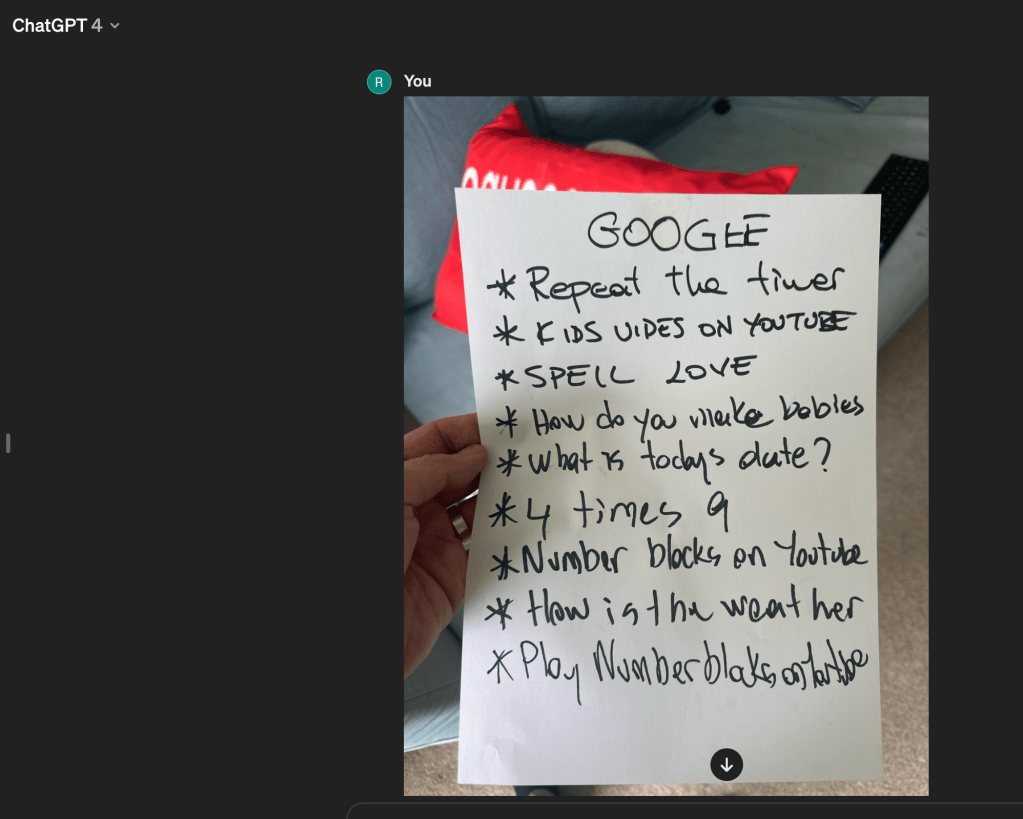 ChatGPT 4
R You
GOOGLE
* Repeat the timer
* KIDS VIDES ON YOUTUBE
* SPELL LOVE
* How do you make babies
* What is todays date?
* 4 times 9
* Number blocks on Youtube
* How is the weather
* Play Numberblocks on Youtube